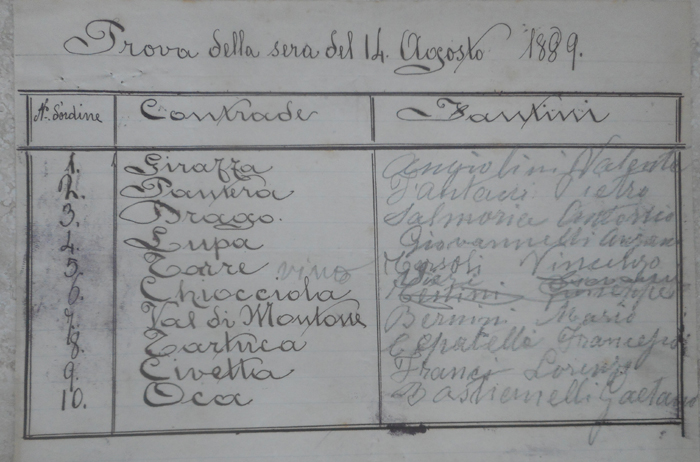 Prova della sera del 14. Agosto 1889.
N. d'ordine Contrade Fantini
1. Giraffa Angiolini Valente
2. Pantera Fantacci Pietro
3. Drago. Salmoria Antonio
4. Lupa Giovannelli
5. Torre vino Vincenzo
6. Chiocciola
7. Val di Montone Bernini Mario
8. Tartuca Francesco
9. Civetta Franci Lorenzo
10. Oca Bastianelli Gaetano